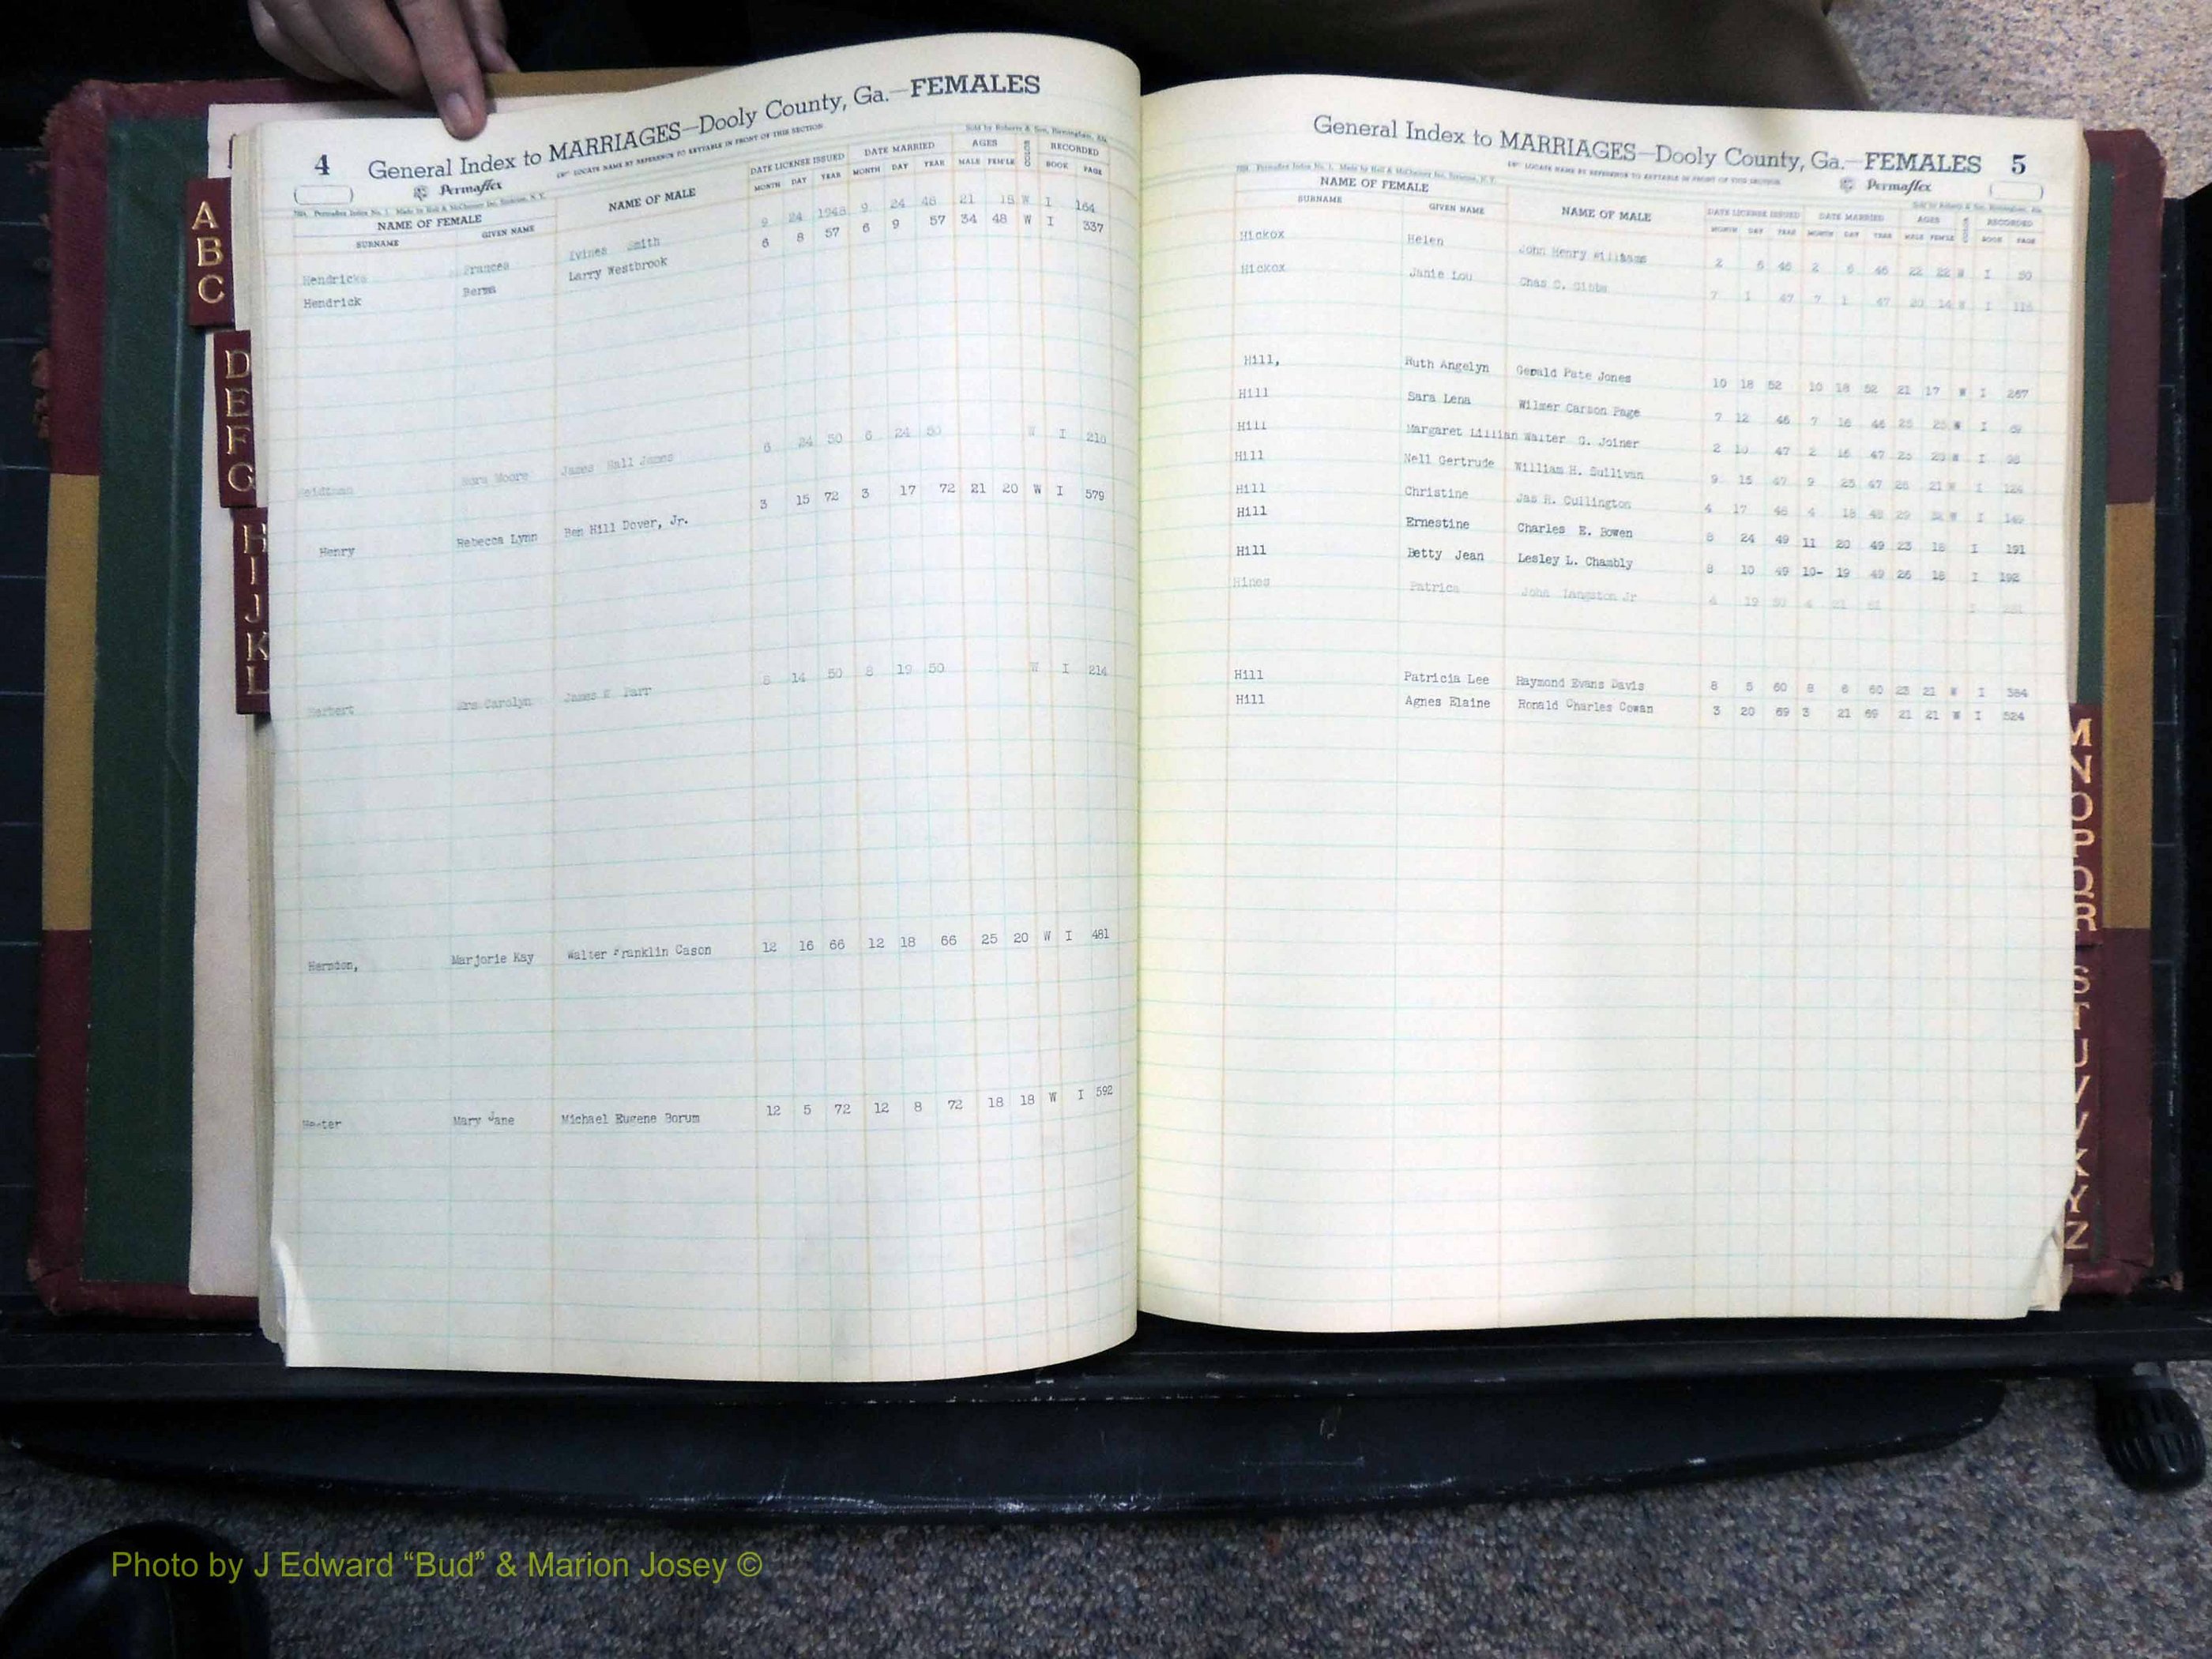 4 General Index to MARRIAGES—Dooly County, Ga.—FEMALES
LOCATE NAME BY REFERENCE TO KEYTABLE IN FRONT OF THIS SECTION
Permaflex
Sold by Roberts & Son, Birmingham, Ala.
NAME OF FEMALE NAME OF MALE DATE LICENSE ISSUED DATE MARRIED AGES RECORDED
SURNAME GIVEN NAME MONTH DAY YEAR MONTH DAY YEAR MALE FEM'LE BOOK PAGE
Hendricks Frances Ivines Smith 9 24 1948 9 24 48 21 18 W I 164
Hendrick Berma Larry Westbrook 6 8 57 6 9 57 34 48 W I 337
Moore James Hall James 6 24 50 6 24 50 W I 210
Henry Rebecca Lynn Ben Hill Dover, Jr. 3 15 72 3 17 72 21 20 W I 579
Herbert Mrs Carolyn James Parr 8 14 50 8 19 50 W I 214
Herndon, Marjorie Kay Walter Franklin Cason 12 16 66 12 18 66 25 20 W I 481
Mary Jane Michael Eugene Borum 12 5 72 12 8 72 18 18 W I 592
General Index to MARRIAGES—Dooly County, Ga.—FEMALES 5
LOCATE NAME BY REFERENCE TO KEYTABLE IN FRONT OF THIS SECTION
Permaflex
NAME OF FEMALE NAME OF MALE DATE LICENSE ISSUED DATE MARRIED AGES RECORDED
SURNAME GIVEN NAME MONTH DAY YEAR MONTH DAY YEAR MALE FEM'LE BOOK PAGE
Hickox Helen John Henry Williams 2 6 46 2 6 46 22 22 W I 50
Hickox Janie Lou Chas C. Gibbs 7 1 47 7 1 47 20 W I
Hill, Ruth Angelyn Gerald Pate Jones 10 18 52 10 18 52 21 17 W I 267
Hill Sara Lena Wilmer Carson Page 7 12 46 7 16 46 25 25 W I
Hill Margaret Lillian Walter G. Joiner 2 10 47 2 16 47 W I
Hill Nell Gertrude William H. Sullivan 9 15 47 9 25 47 21 W I
Hill Christine Jas H. Cullington 4 17 48 4 18 48 29 W I
Hill Ernestine Charles E. Bowen 8 24 49 11 20 49 23 18 I 191
Hill Betty Jean Lesley L. Chambly 8 10 49 10- 19 49 26 18 I 192
Hines Patrica John Langston Jr 19 21
Hill Patricia Lee Raymond Evans Davis 8 5 60 8 6 60 23 21 W I 384
Hill Agnes Elaine Ronald Charles Cowan 3 20 69 3 21 69 21 21 W I 524
A
B
C
D
E
F
G
H
I
J
K
L
M
N
O
P
Q
R
S
T
U
V
X
Y
Z
Photo by J Edward “Bud” & Marion Josey ©